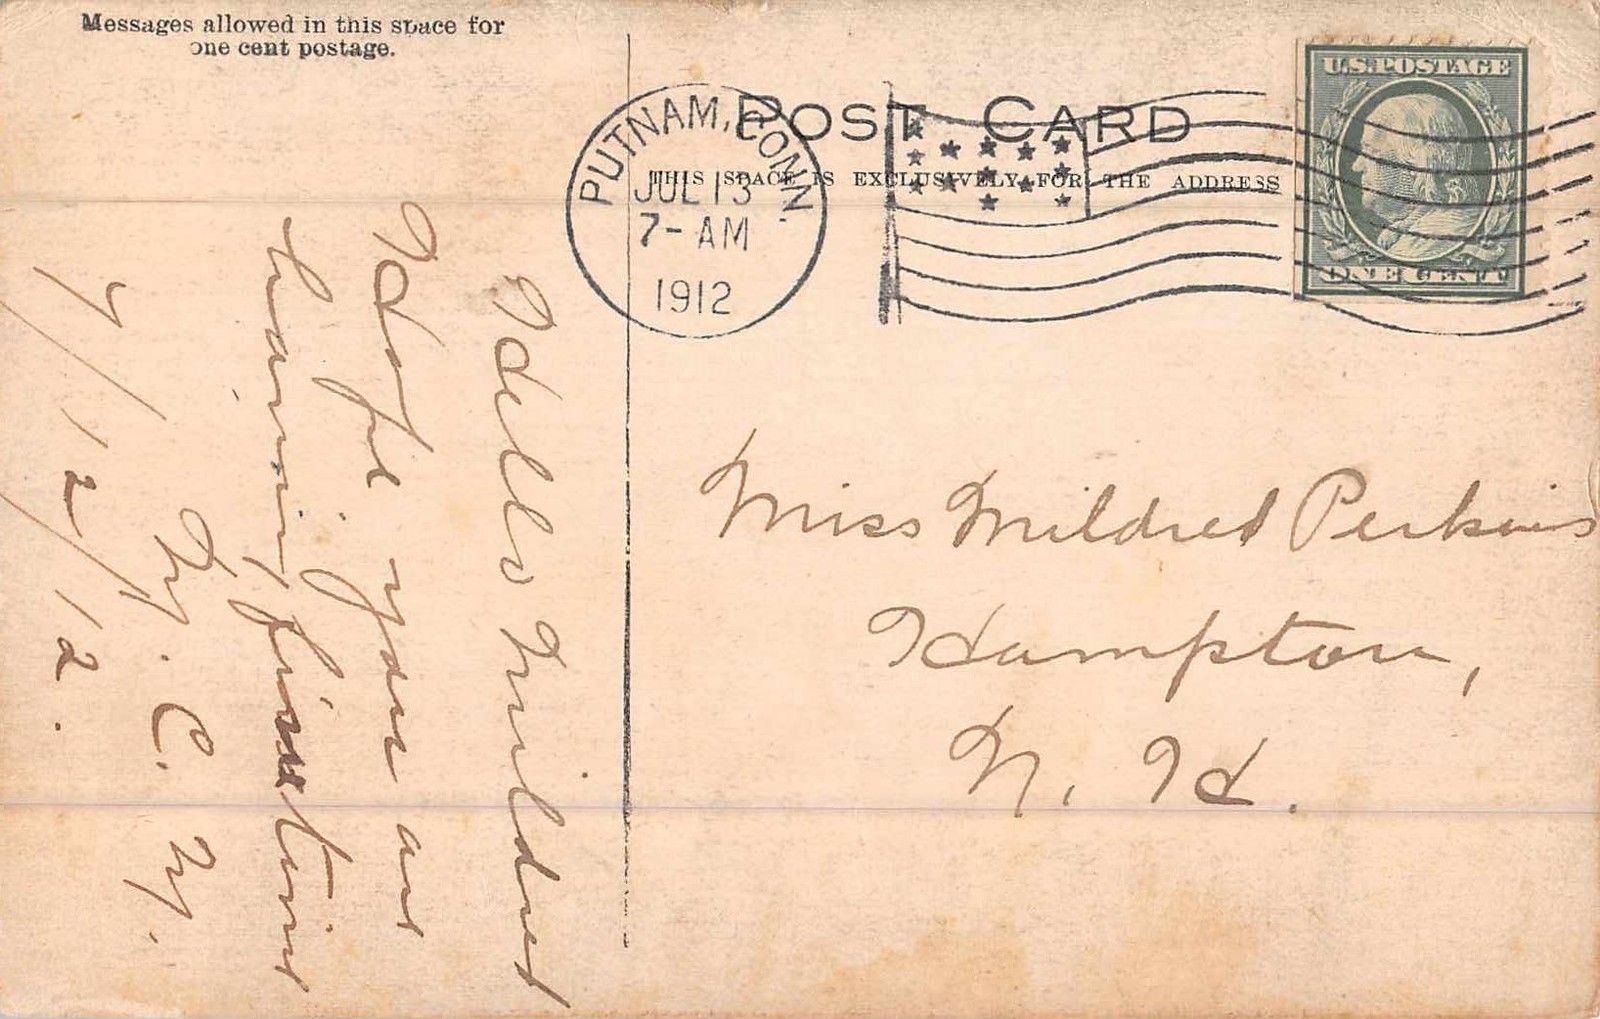 Messages allowed in this space for
one cent postage.
POST CARD
THIS SPACE IS EXCLUSIVELY FOR THE ADDRESS
PUTNAM, CONN.
JUL 13
7-AM
1912
U.S. POSTAGE
ONE CENT
Hello Mildred
Hope you are
having fine time
C. M.
7/12/12.
Miss Mildred Perkins
Hampton,
N. H.